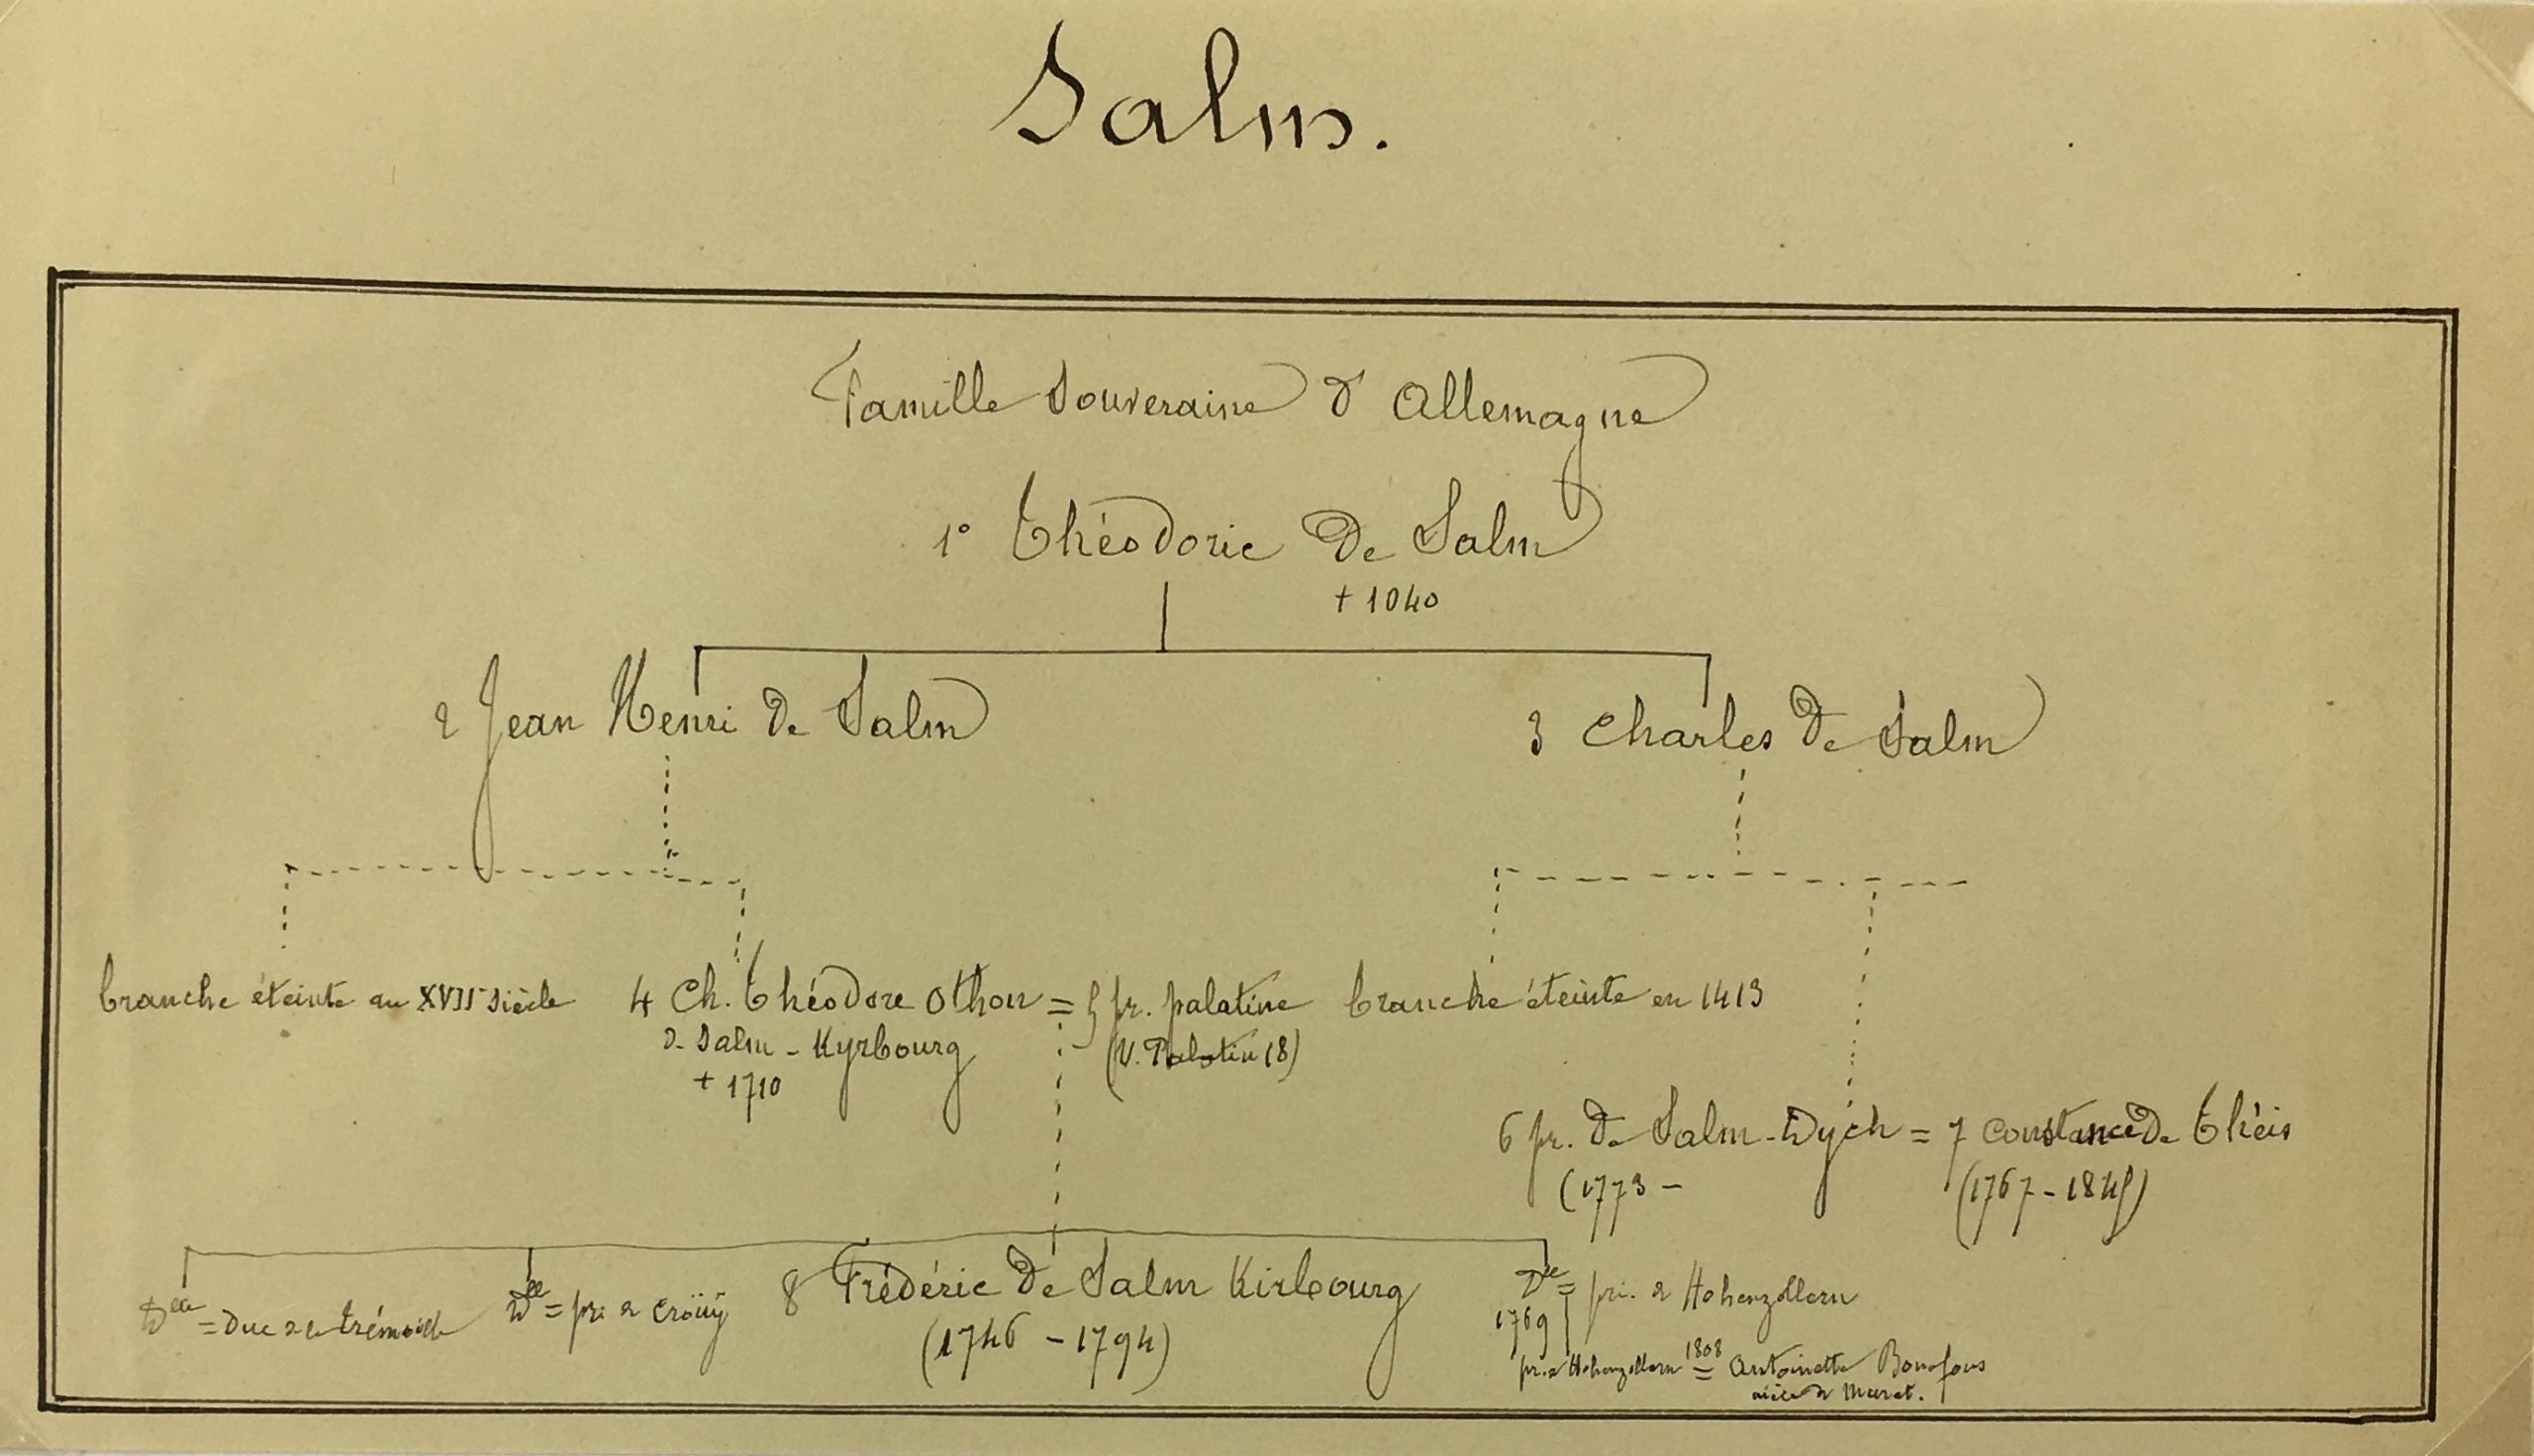 Salm.
Famille Souveraine d'Allemagne
1° Théodoric de Salm
+ 1040
2 Jean Henri de Salm
3 Charles de Salm
branche éteinte au XVIIe siècle
4 Ch. Théodore Othon = 5 pr. palatine
d. Salm - Kyrbourg
(V. Palatin 18)
+ 1710
branche éteinte en 1413
6 pr. de Salm-Dych = 7 Constance de Théis
(1773 -
(1767 - 1845)
Dlle = Duc de la Trémoille
Dlle = pr. de Croüy
8 Frédéric de Salm Kirbourg
(1746 - 1794)
Dlle = pri. de Hohenzollern
1769
pr. de Hohenzollern 1808 = Antoinette Bonafous
nièce de Murat.